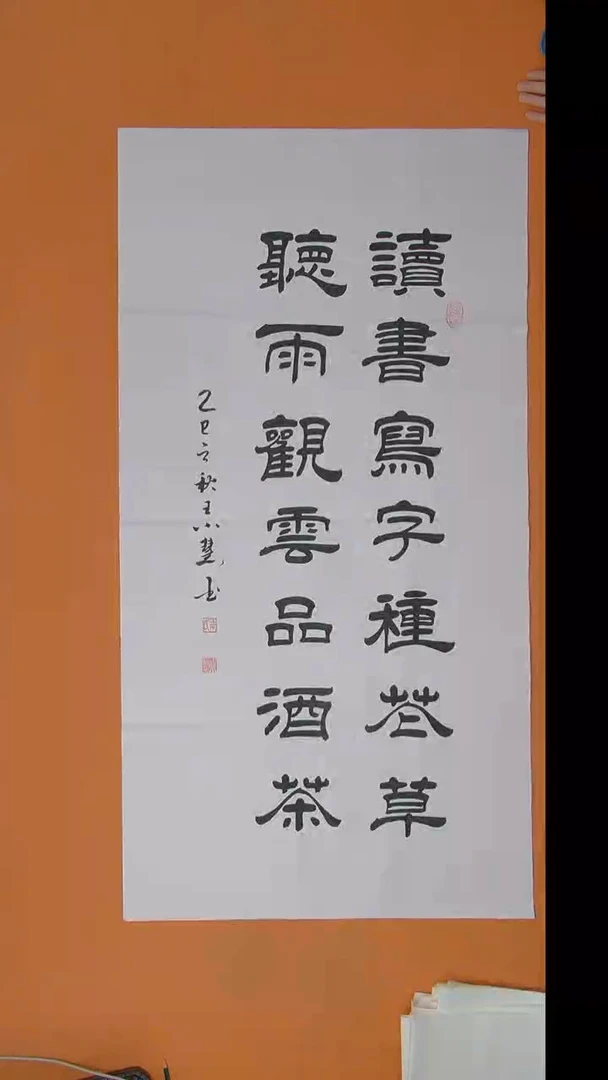 讀書寫字種花草
聽雨觀雲品酒茶
乙巳之秋王小慧书